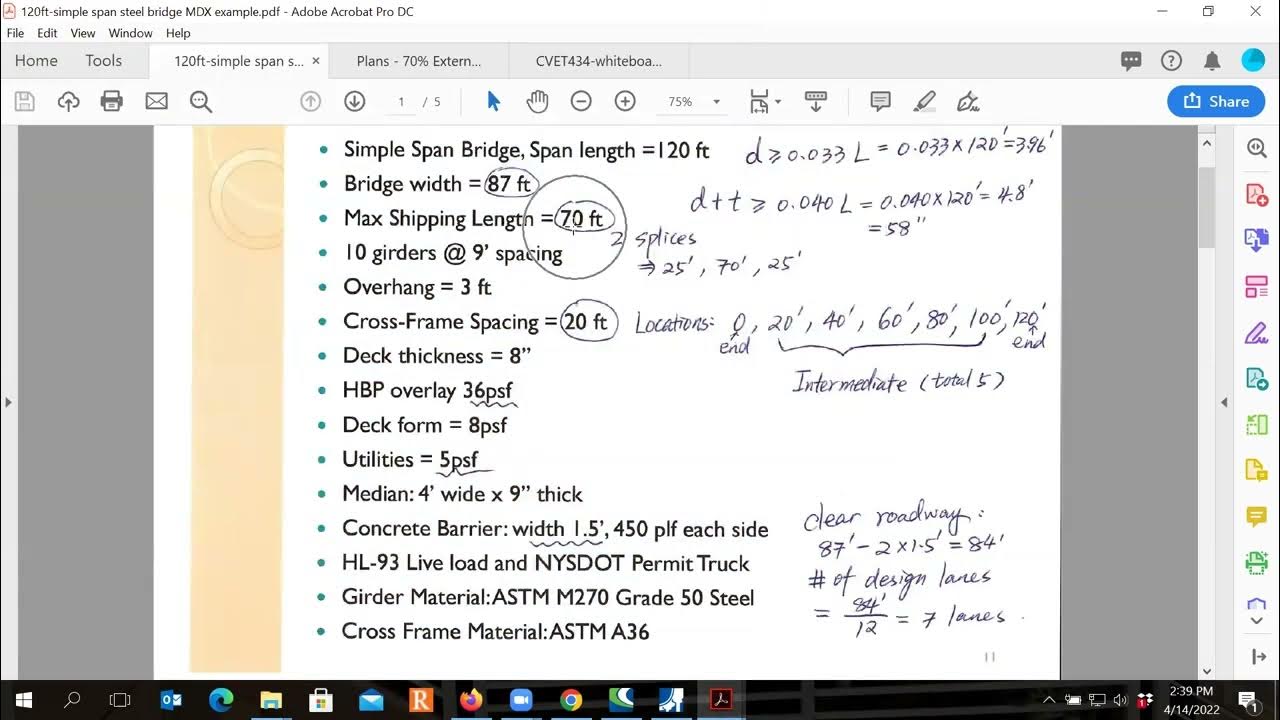 120ft-simple span steel bridge MDX example.pdf - Adobe Acrobat Pro DC
File Edit View Window Help
Home Tools 120ft-simple span s... × Plans - 70% Extern... CVET434-whiteboa...
1 / 5 75% Share
• Simple Span Bridge, Span length =120 ft
d ≥ 0.033 L = 0.033 × 120' = 3.96'
• Bridge width = 87 ft
d + t ≥ 0.040 L = 0.040 × 120' = 4.8'
= 58"
• Max Shipping Length = 70 ft
2 splices
⇒ 25', 70', 25'
• 10 girders @ 9' spacing
• Overhang = 3 ft
• Cross-Frame Spacing = 20 ft
Locations: 0, 20', 40', 60', 80', 100', 120'
end end
Intermediate (total 5)
• Deck thickness = 8”
• HBP overlay 36psf
• Deck form = 8psf
• Utilities = 5psf
• Median: 4’ wide x 9” thick
• Concrete Barrier: width 1.5’, 450 plf each side
• HL-93 Live load and NYSDOT Permit Truck
• Girder Material: ASTM M270 Grade 50 Steel
• Cross Frame Material: ASTM A36
clear roadway:
87' - 2 × 1.5' = 84'
# of design lanes
= 84' / 12 = 7 lanes.
11
2:39 PM
4/14/2022
1